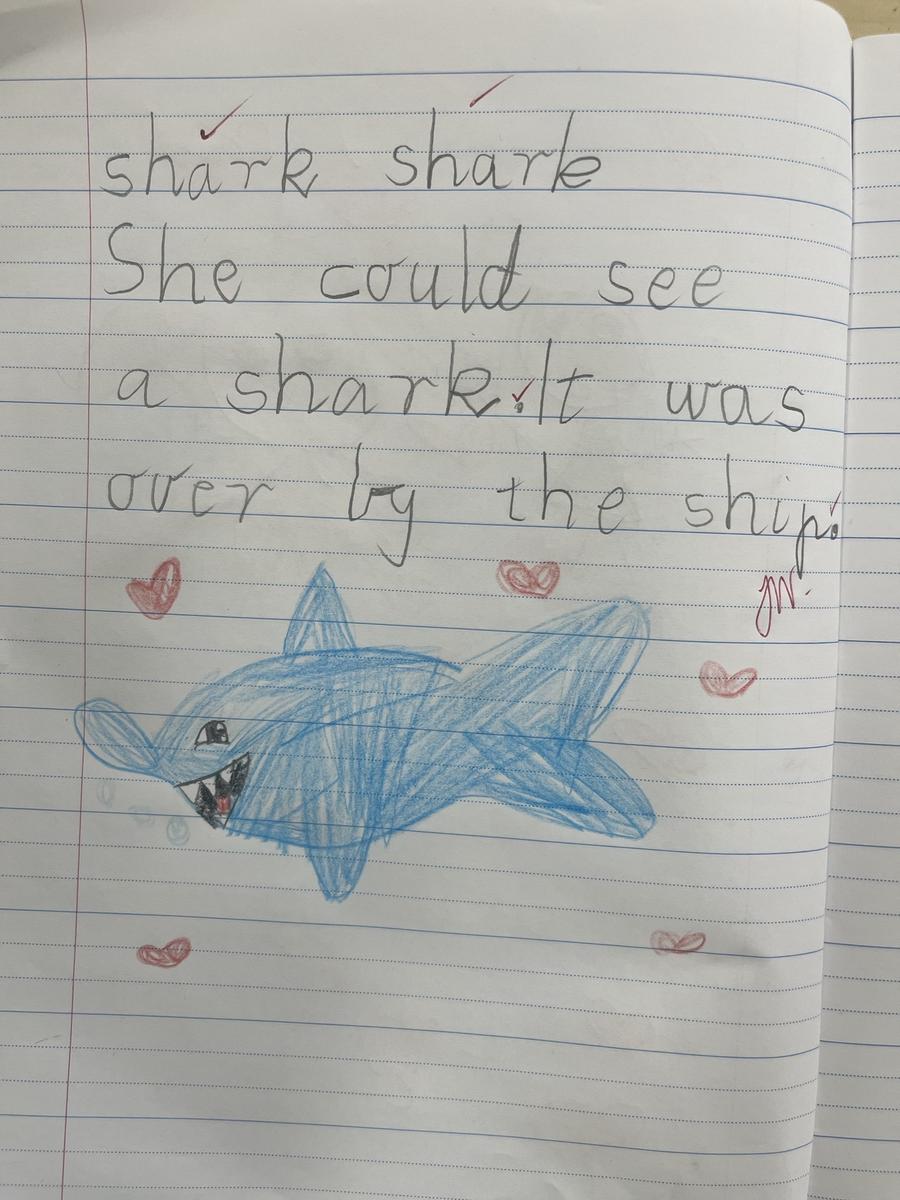 shark shark
She could see
a shark. It was
over by the ship.
JW.